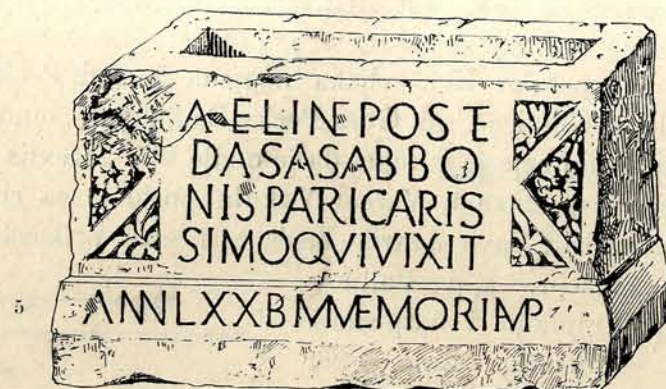 AELINEPOSTE
DASASABBO
NISPARICARIS
SIMOQVIVIXIT
5 ANNLXXBMMEMORIAMP